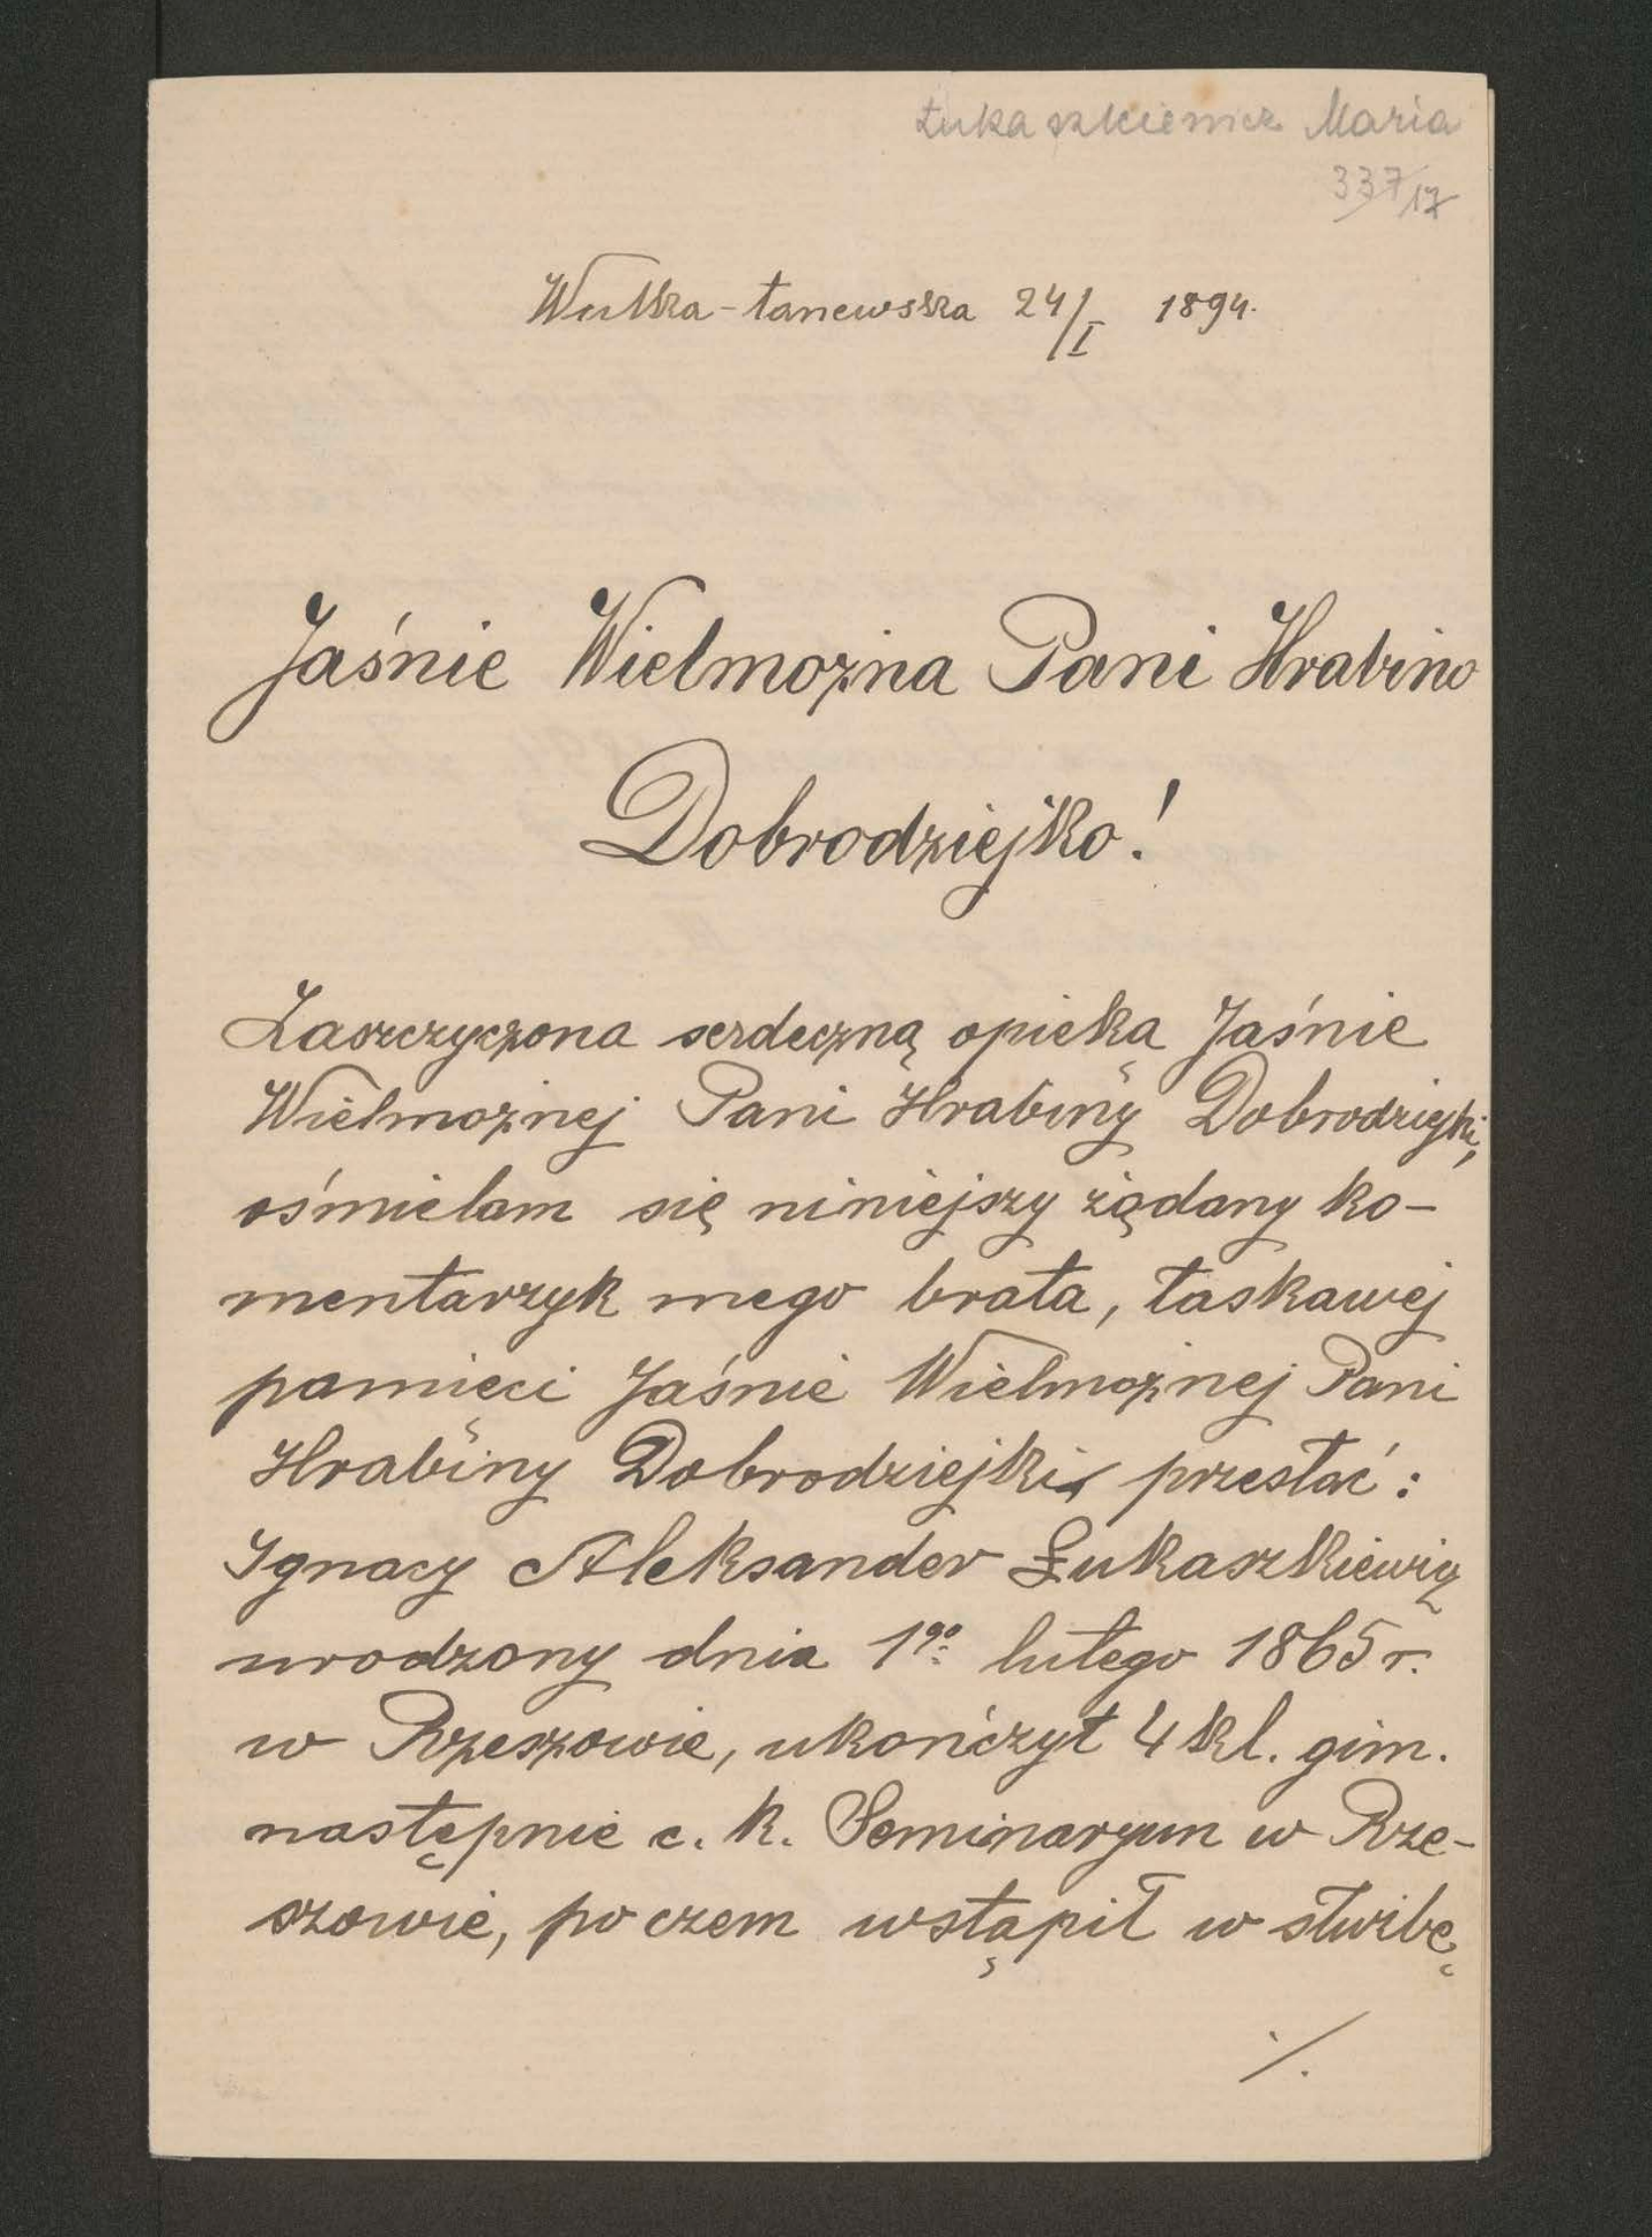 Łukaszkiewicz Maria
337/17
Wulka-tanewska 24/I 1894.
Jaśnie Wielmożna Pani Hrabino
Dobrodziejko!
Zaszczyczona serdeczną opieką Jaśnie
Wielmożnej Pani Hrabiny Dobrodziejki,
ośmielam się niniejszy żądany ko-
mentarzyk mego brata, łaskawej
pamięci Jaśnie Wielmożnej Pani
Hrabiny Dobrodziejki przesłać:
Ignacy Aleksander Łukaszkiewicz
urodzony dnia 1go lutego 1865 r.
w Rzeszowie, ukończył 4 kl. gim.
następnie c. k. Seminaryum w Rze-
szowie, po czem wstąpił w służbę
./.